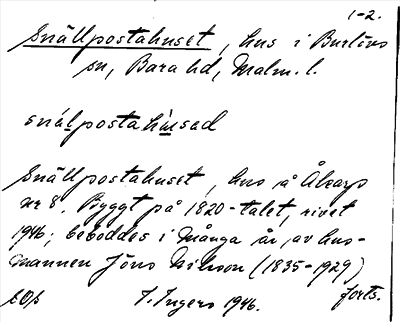 1-2.
Snällpostahuset, hus i Burlövs
sn, Bara hd, Malm. l.
snálpostahused
Snällpostahuset, hus å Åkarp
nr 8. Byggt på 1820-talet, rivet
1946; beboddes i många år av hus-
mannen Jöns Nilsson (1835-1929)
forts.
I. Ingers 1946.